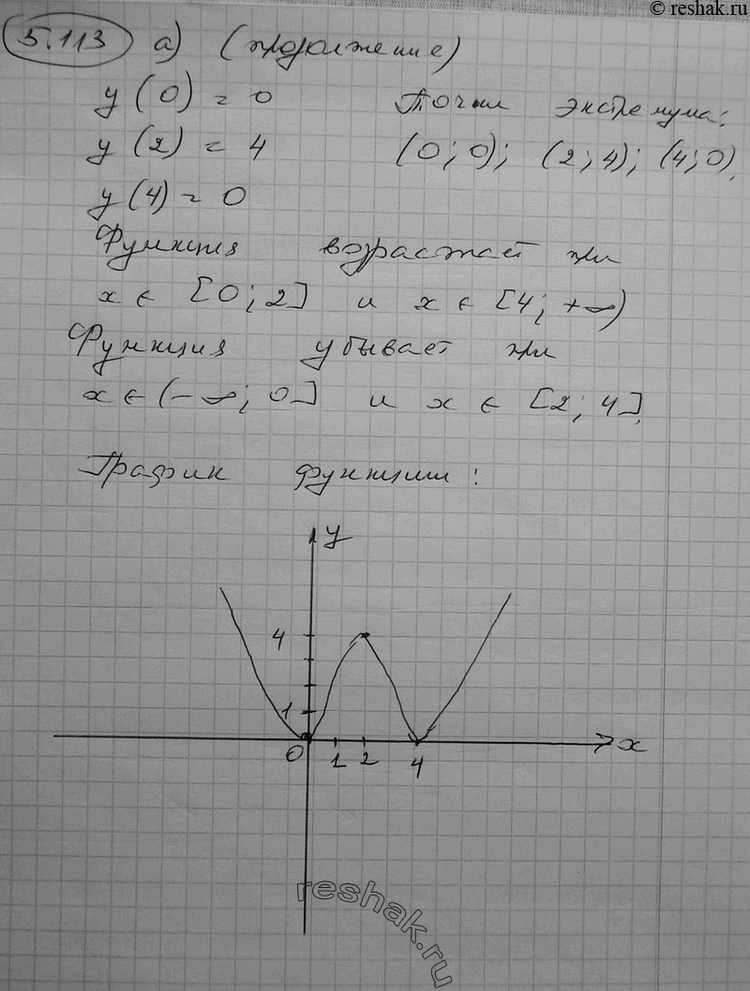 © reshak.ru
5.113 а) (продолжение)
y(0) = 0 Точки экстремума:
y(2) = 4 (0; 0); (2; 4); (4; 0).
y(4) = 0
Функция возрастает при
x ∈ [0; 2] и x ∈ [4; +∞)
Функция убывает при
x ∈ (-∞; 0] и x ∈ [2; 4].
График функции:
y
4
1
0 1 2 4 x
reshak.ru